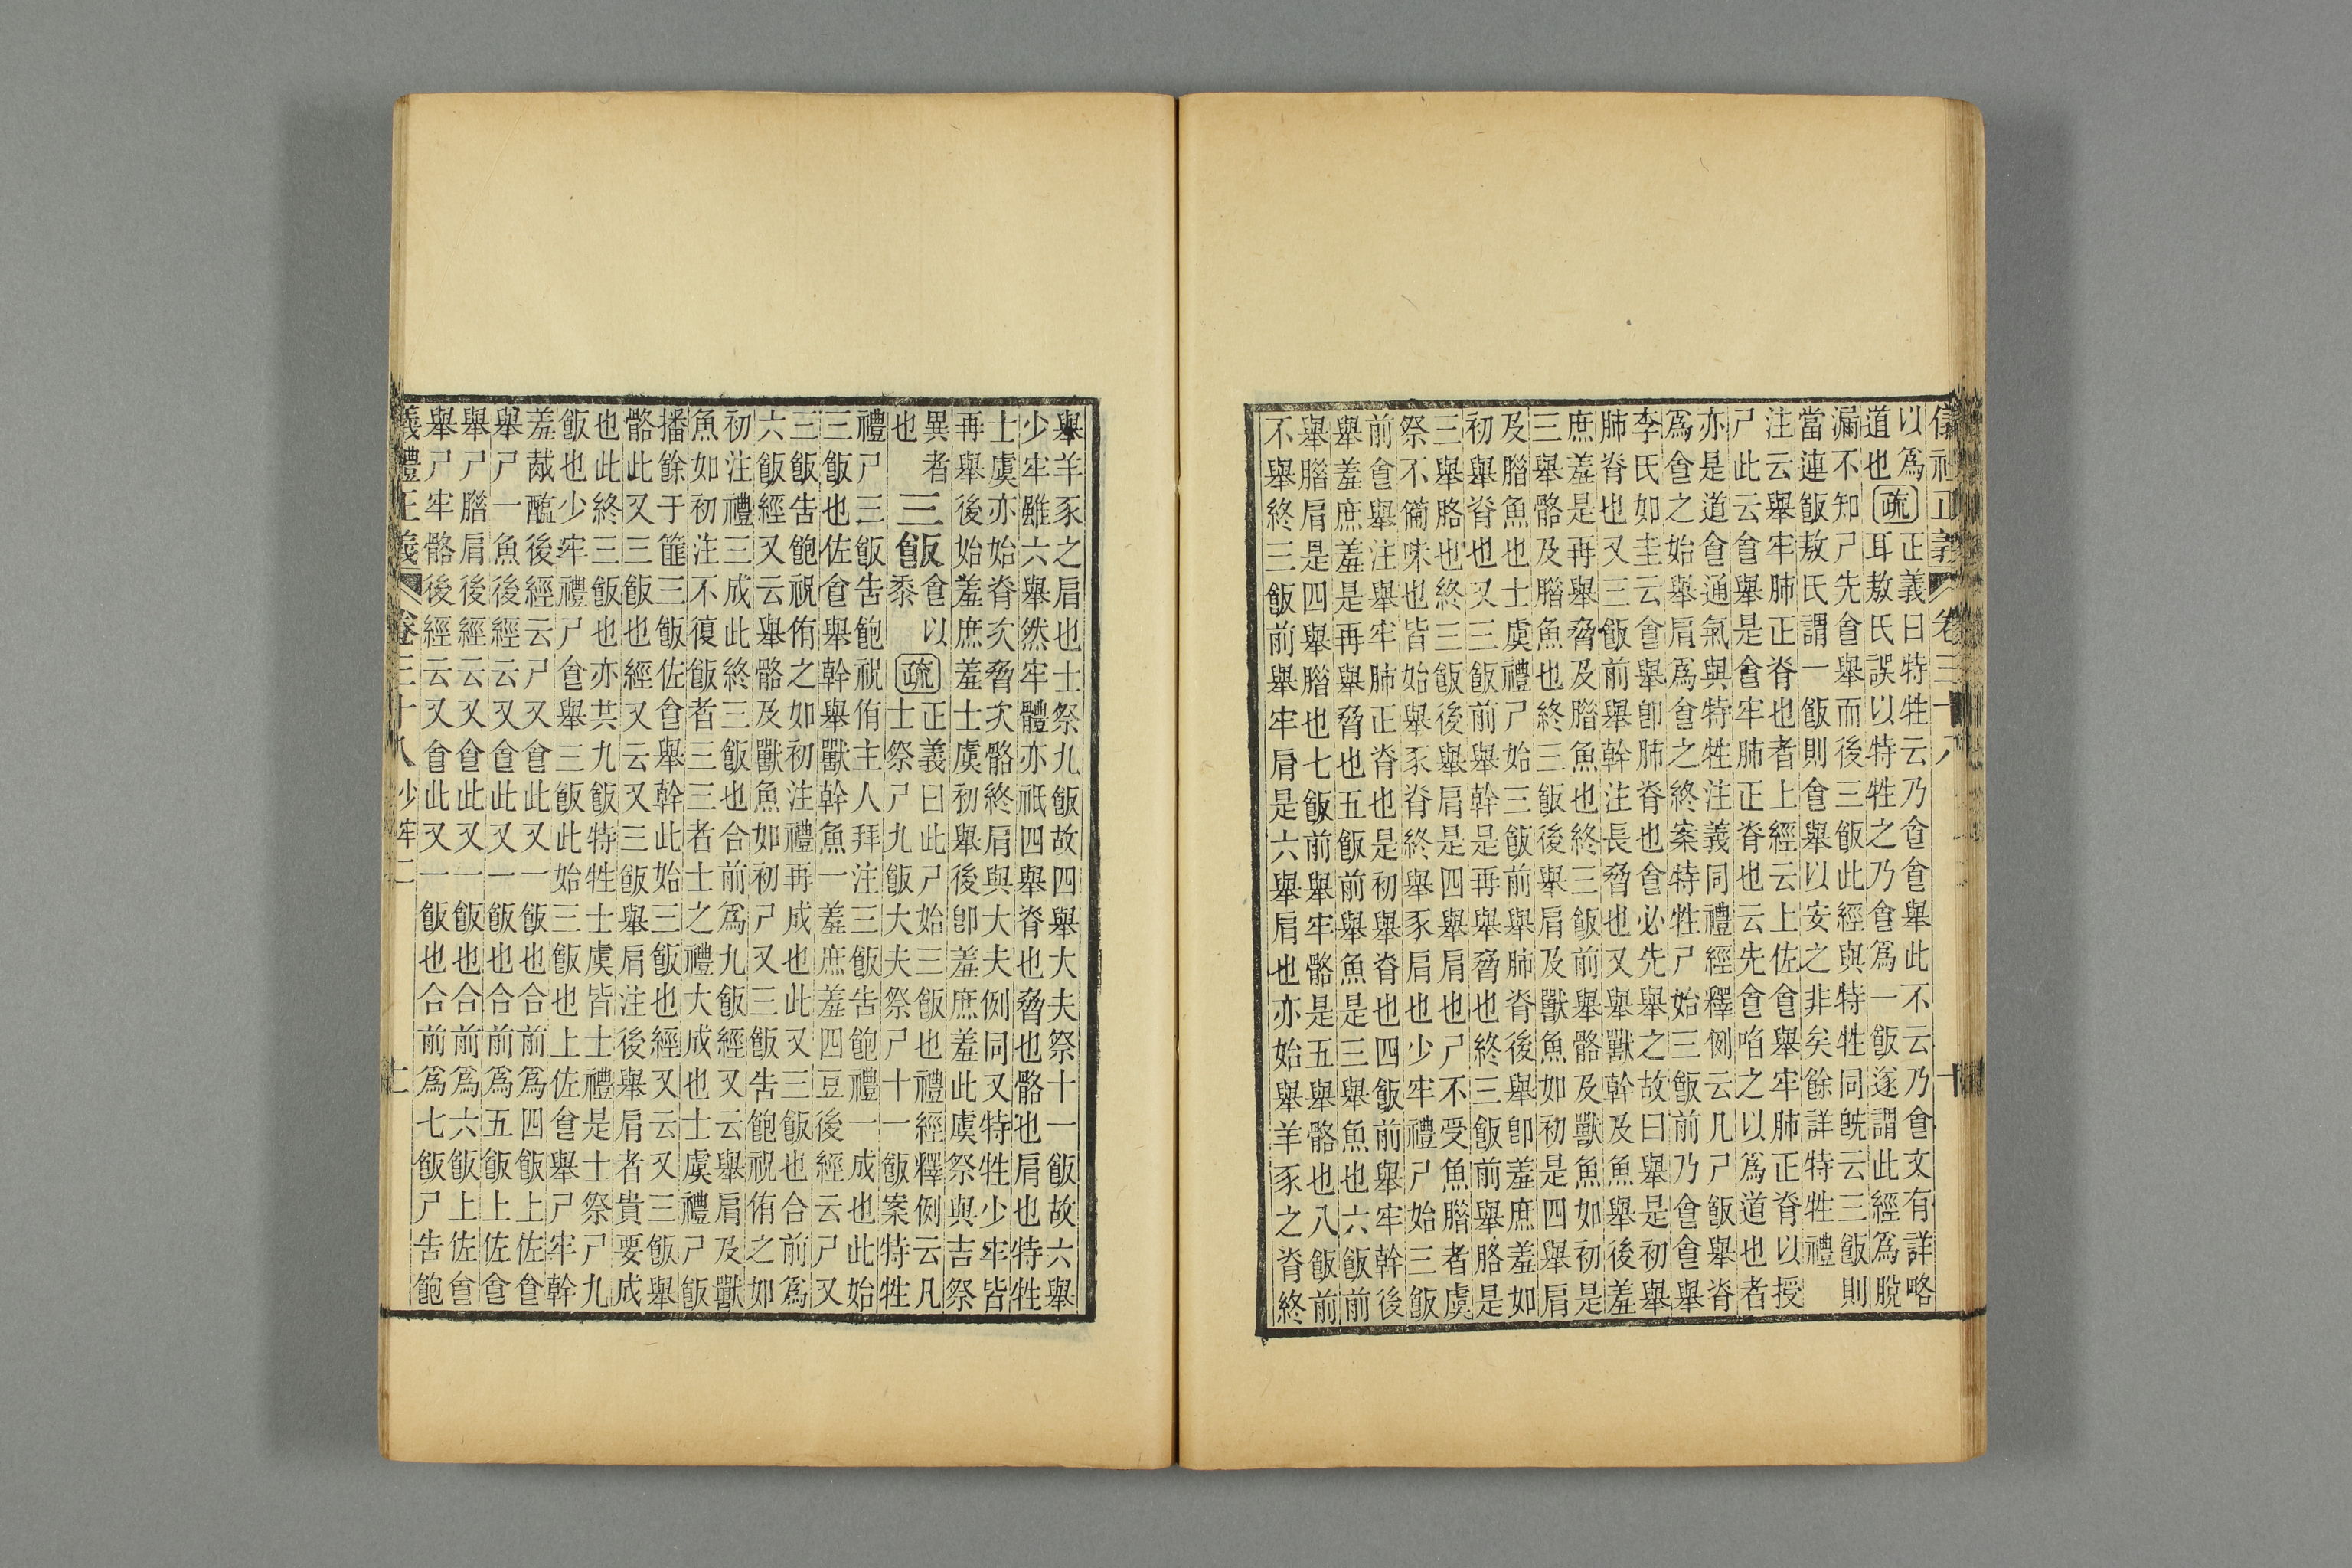 儀禮正義 卷三十八 十
以爲
道也
疏
正義曰特牲云乃食食舉此不云乃食文有詳略
耳敖氏誤以特牲之乃食爲一飯遂謂此經爲脫
漏不知尸先食舉而後三飯此經與特牲同旣云三飯則
當連飯敖氏謂一飯則食舉以安之非矣餘詳特牲禮
注云舉牢肺正脊也者上經云上佐食舉牢肺正脊以授
尸此云食舉是食牢肺正脊也云先食啗之以爲道也者
亦是道食通氣與特牲注義同禮經釋例云凡尸飯舉脊
爲食之始舉肩爲食之終案特牲尸始三飯前乃食食舉
李氏如圭云食舉卽肺脊也食必先舉之故曰舉是初舉
肺脊也又三飯前舉幹注長脅也又舉獸幹及魚舉後羞
庶羞是再舉脅及腊魚也終三飯前舉骼及獸魚如初是
三舉骼及腊魚也終三飯後舉肩及獸魚如初是四舉肩
及腊魚也士虞禮尸始三飯前舉肺脊後舉卽羞庶羞如
初舉脊也又三飯前舉幹是再舉脅也終三飯前舉胳是
三舉胳也終三飯後舉肩是四舉肩也尸不受魚腊者虞
祭不備味也皆始舉豕脊終舉豕肩也少牢禮尸始三飯
前食舉注舉牢肺正脊也是初舉脊也四飯前舉牢幹後
舉羞庶羞是再舉脅也五飯前舉魚是三舉魚也六飯前
舉腊肩是四舉腊也七飯前舉牢骼是五舉骼也八飯前
不舉終三飯前舉牢肩是六舉肩也亦始舉羊豕之脊終
舉羊豕之肩也士祭九飯故四舉大夫祭十一飯故六舉
少牢雖六舉然牢體亦祇四舉脊也脅也骼也肩也特牲
士虞亦始脊次脅次骼終肩與大夫例同又特牲少牢皆
再舉後始羞庶羞士虞初舉後卽羞庶羞此虞祭與吉祭
異者
也
三飯
食以
黍
疏
正義曰此尸始三飯也禮經釋例云凡
士祭尸九飯大夫祭尸十一飯案特牲
禮尸三飯告飽祝侑主人拜注三飯告飽禮一成也此始
三飯也佐食舉幹舉獸幹魚一羞庶羞四豆後經云尸又
三飯告飽祝侑之如初注禮再成也此又三飯也合前爲
六飯經又云舉骼及獸魚如初尸又三飯告飽祝侑之如
初注禮三成此終三飯也合前爲九飯經又云舉肩及獸
魚如初注不復飯者三三者士之禮大成也士虞禮尸飯
播餘于篚三飯佐食舉幹此始三飯也經又云又三飯舉
骼此又三飯也經又云又三飯舉肩注後舉肩者貴要成
也此終三飯也亦共九飯特牲士虞皆士禮是士祭尸九
飯也少牢禮尸食舉三飯此始三飯也上佐食舉尸牢幹
羞胾醯後經云尸又食此又一飯也合前爲四飯上佐食
舉尸一魚後經云又食此又一飯也合前爲五飯上佐食
舉尸腊肩後經云又食此又一飯也合前爲六飯上佐食
舉尸牢骼後經云又食此又一飯也合前爲七飯尸告飽
儀禮正義 卷三十八 少牢二